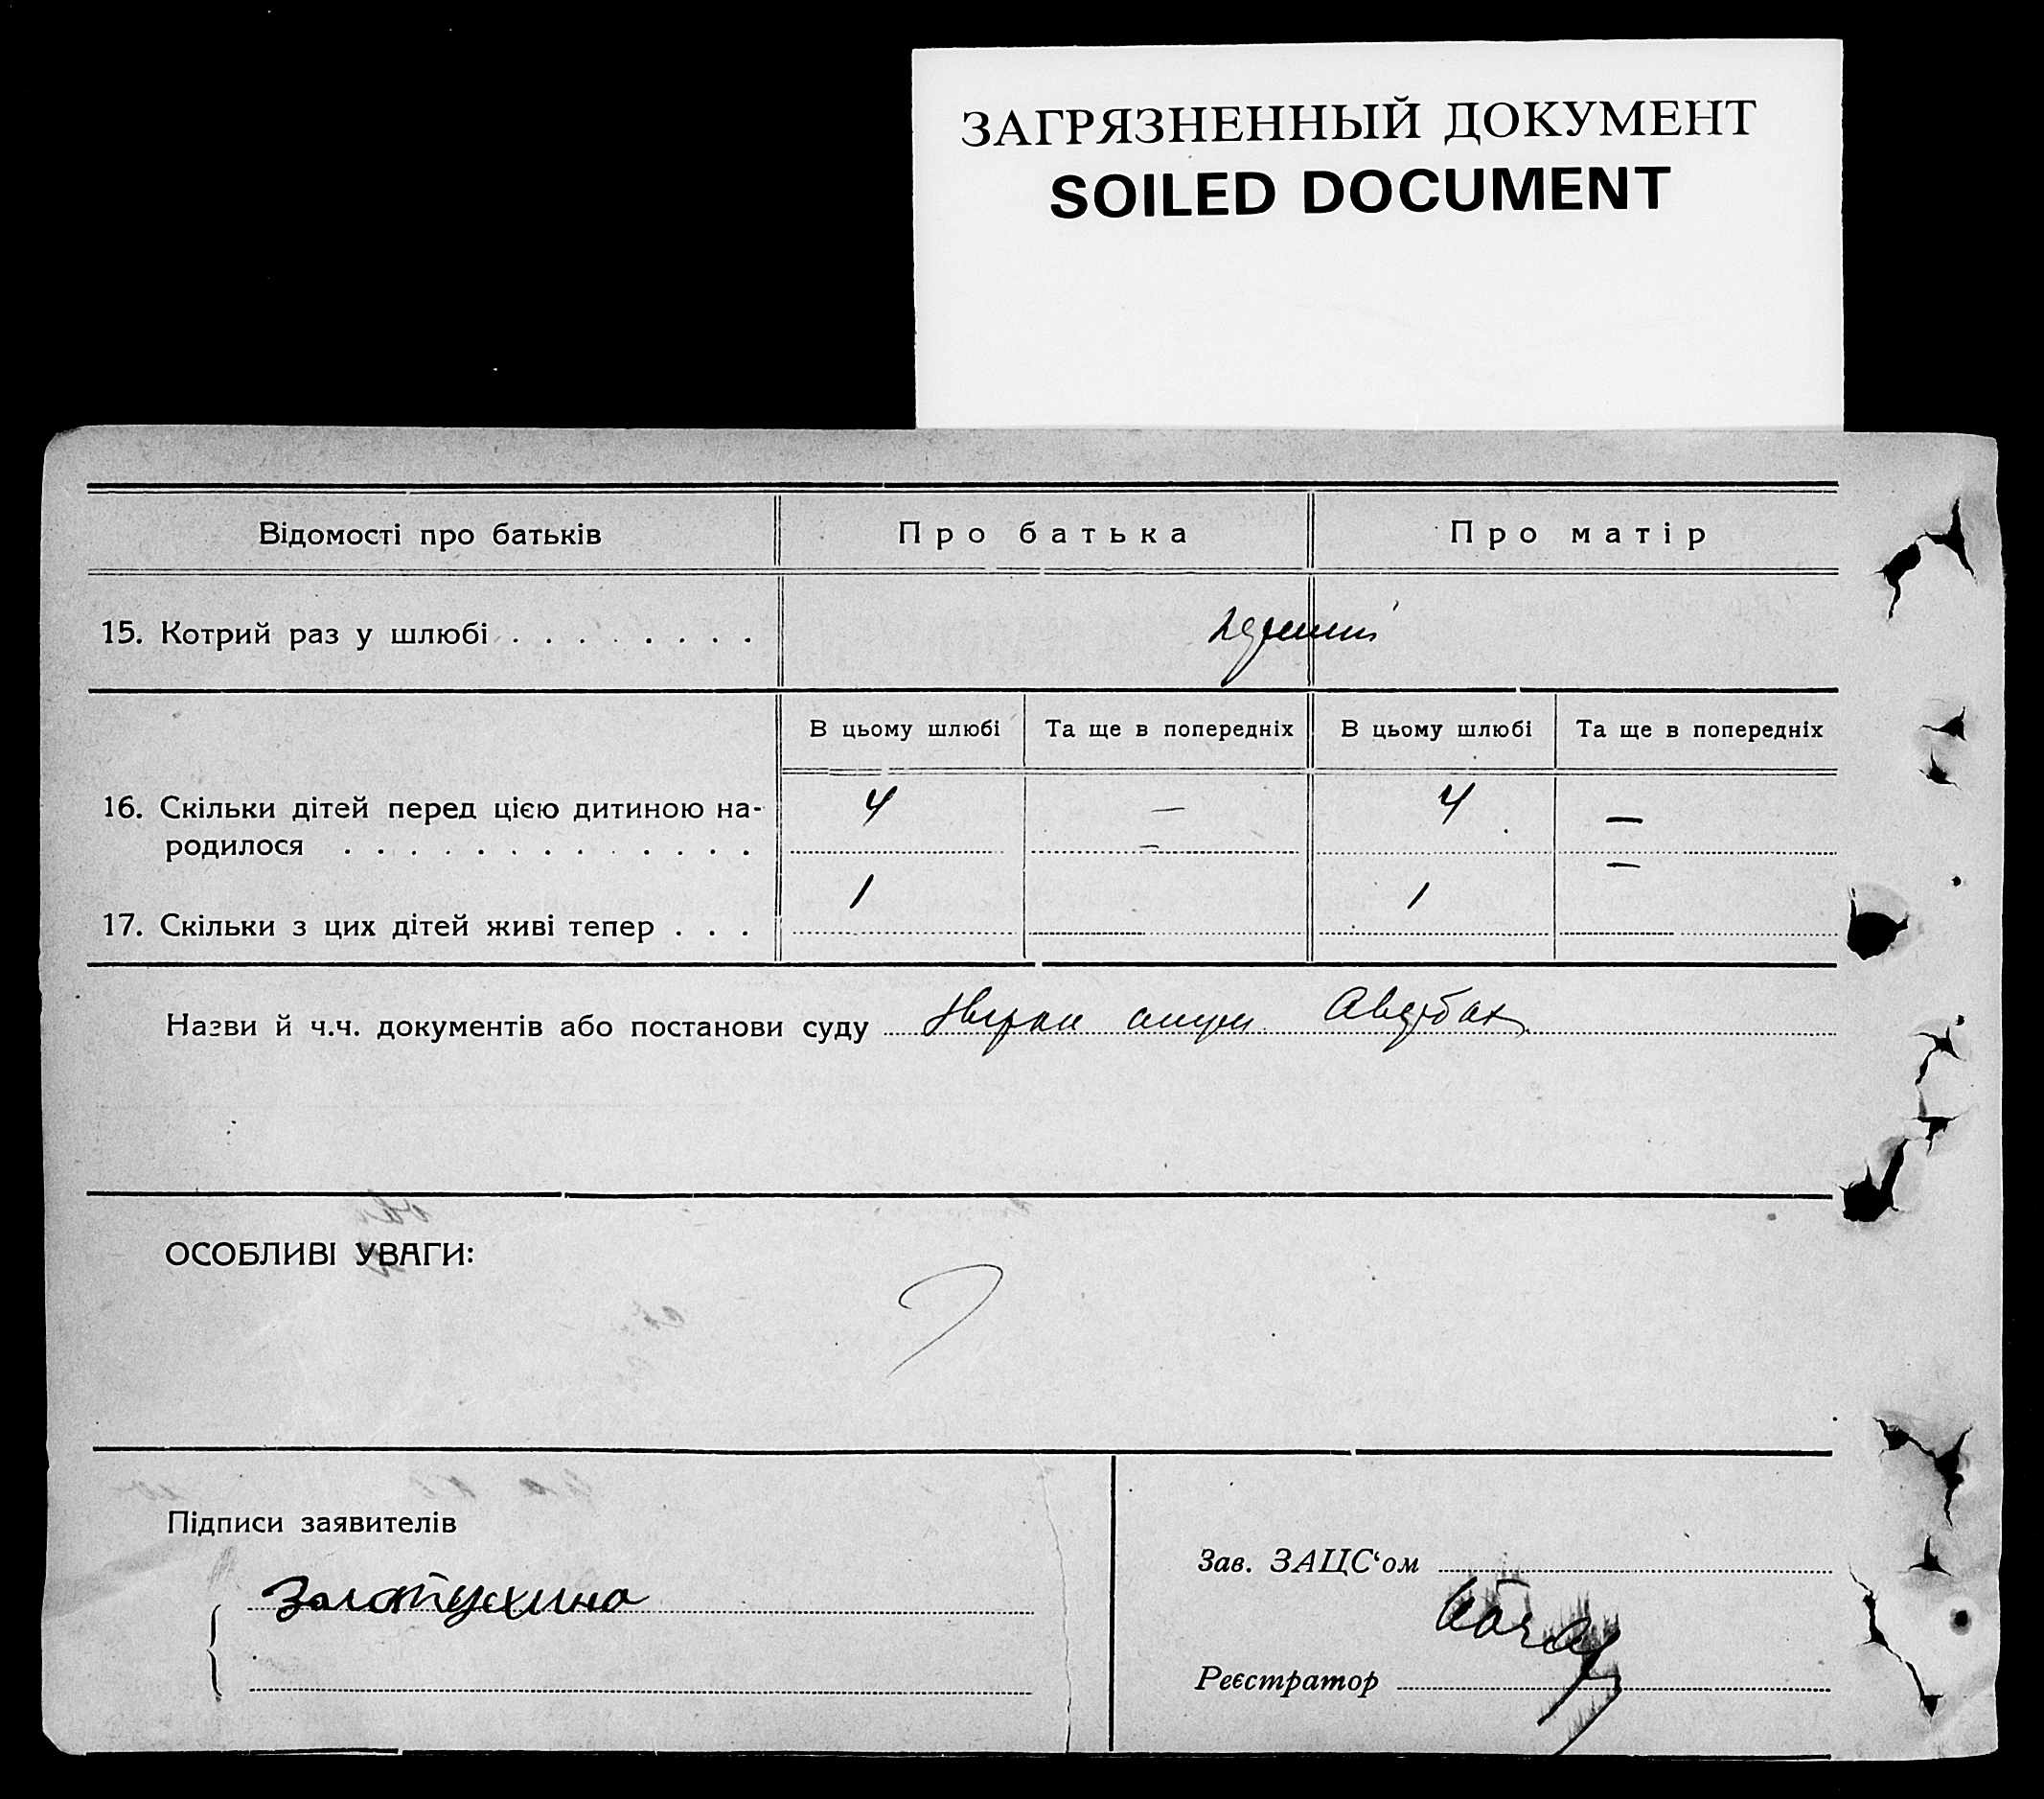 ЗАГРЯЗНЕННЫЙ ДОКУМЕНТ
SOILED DOCUMENT
Відомості про батьків Про батька Про матір
15. Котрий раз у шлюбі . . . . . . . .
В цьому шлюбі Та ще в попередніх В цьому шлюбі Та ще в попередніх
16. Скільки дітей перед цією дитиною на- 4 — 4 —
родилося . . . . . . . . . . . . . — —
17. Скільки з цих дітей живі тепер . . . 1 1
Назви й ч.ч. документів або постанови суду
ОСОБЛИВІ УВАГИ:
Підписи заявителів
Зав. ЗАЦС‘ом
Золотухина
Реєстратор